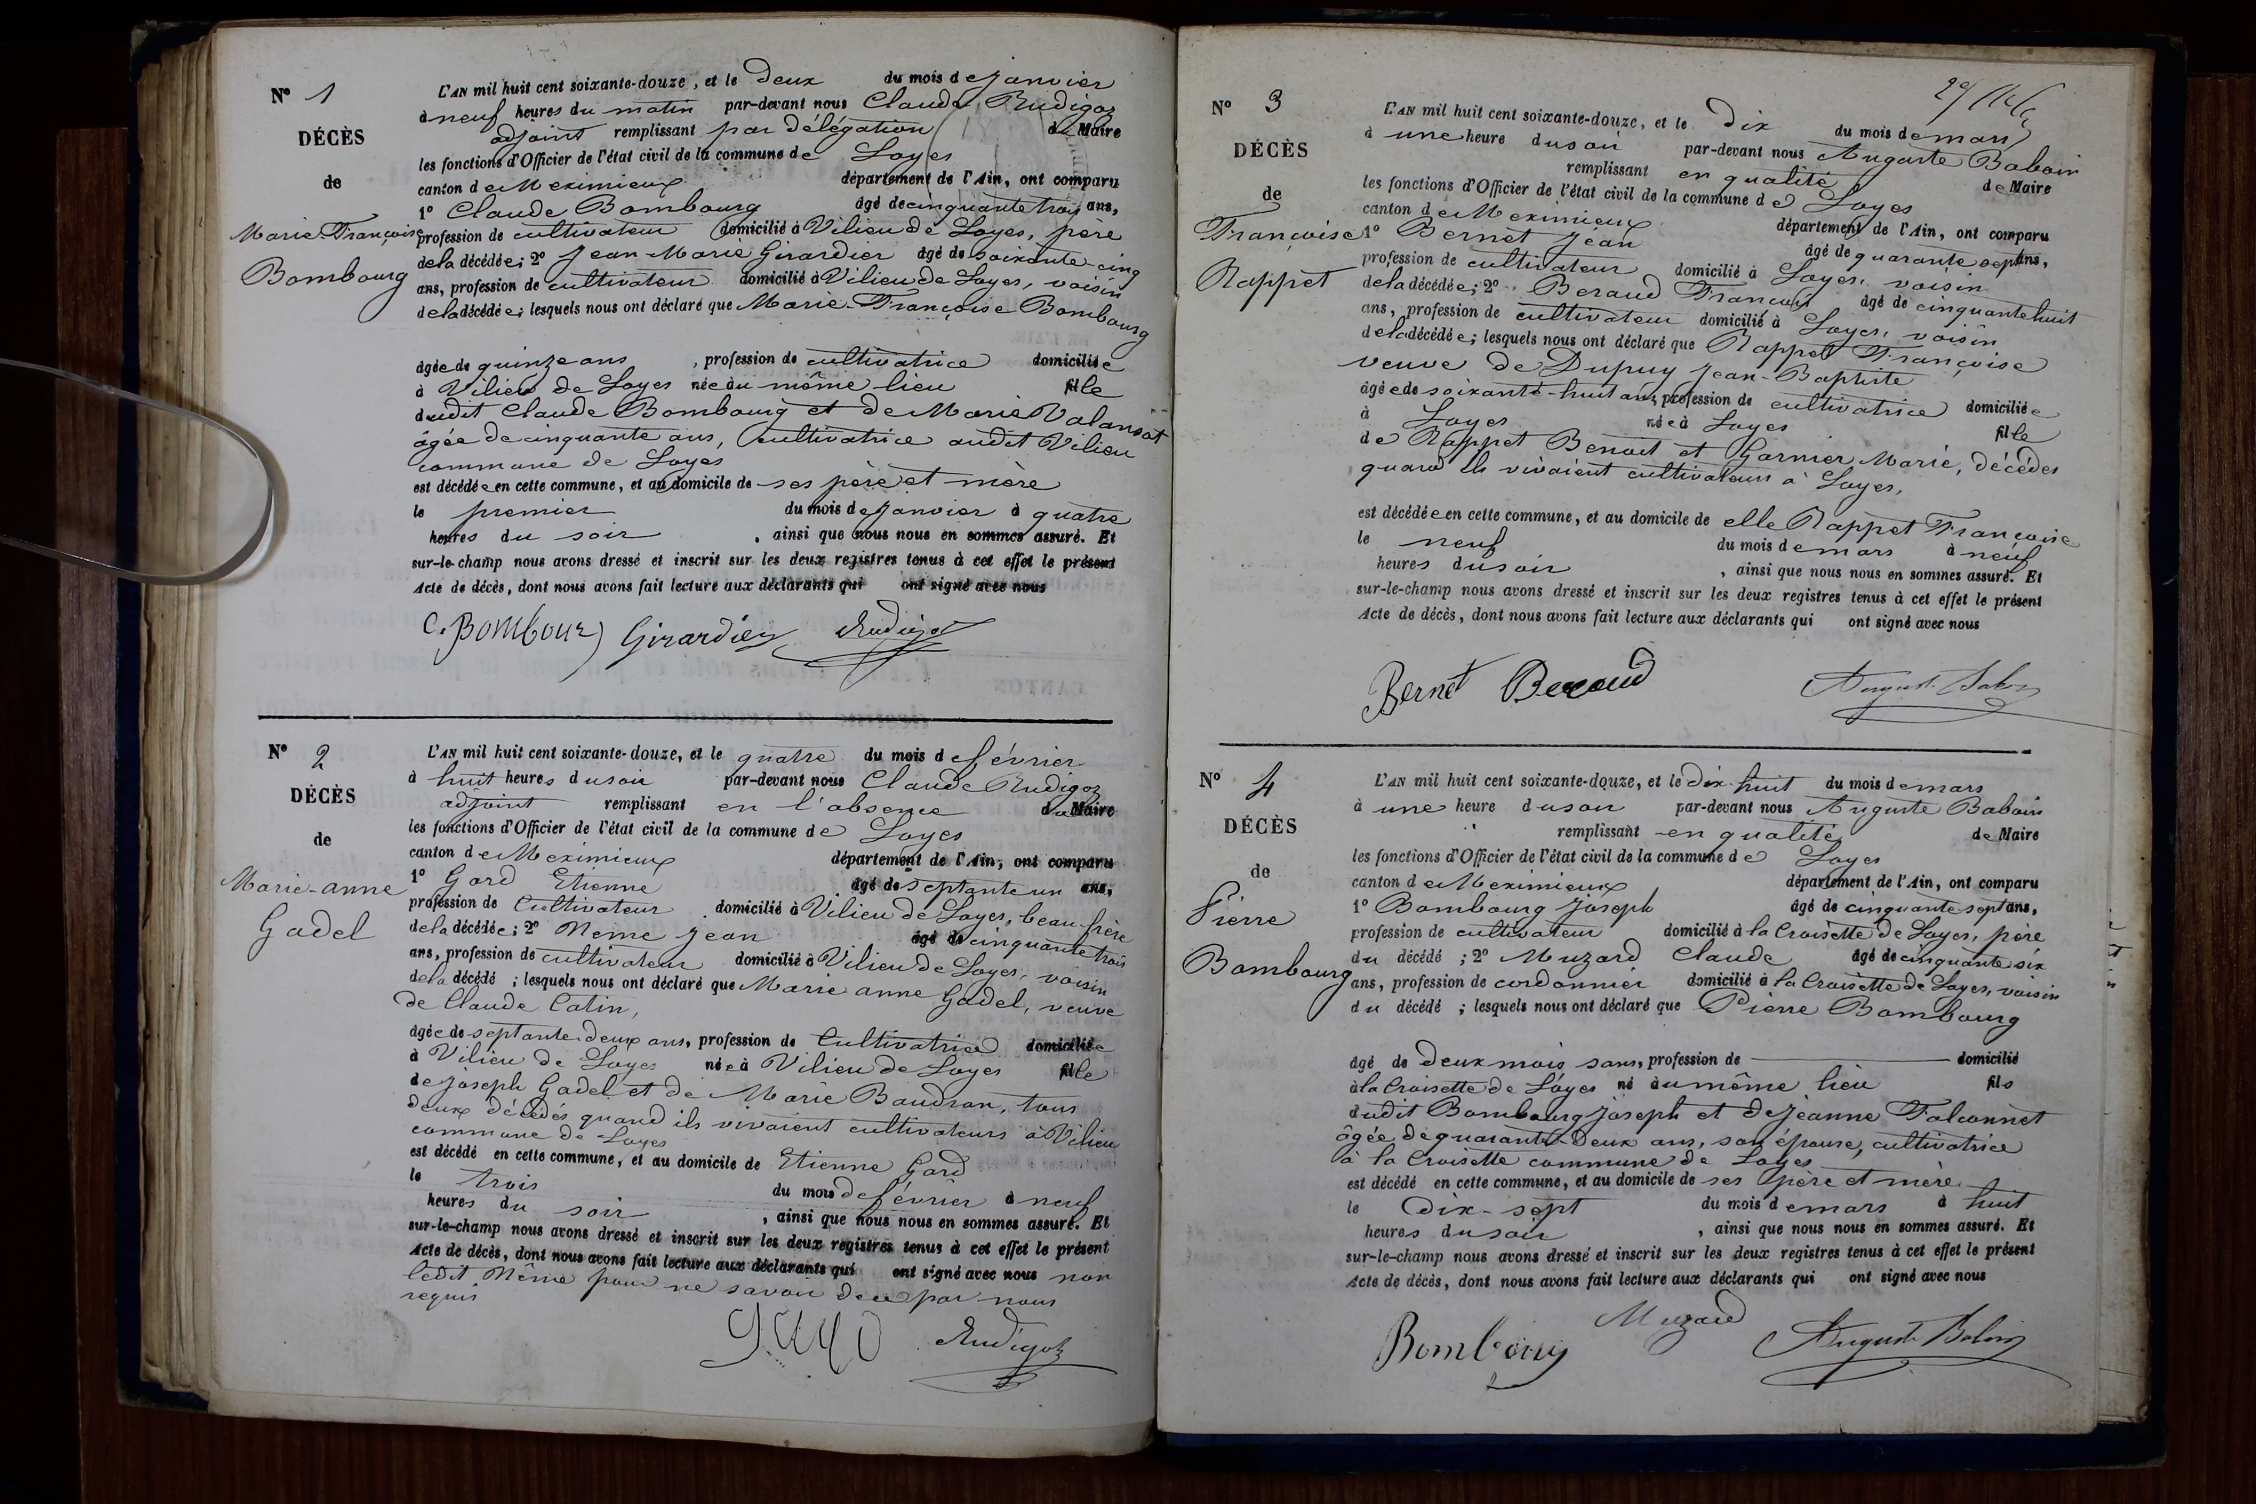 N° 1
DÉCÈS
de
Marie-Françoise
Bombourg
L'AN mil huit cent soixante-douze, et le deux du mois de janvier
à neuf heures du matin par-devant nous Claude Rudigoz
adjoint remplissant par délégation du Maire
les fonctions d'Officier de l'état civil de la commune de Loyes
canton de Meximieux département de l'Ain, ont comparu
1° Claude Bombourg âgé de cinquante trois ans,
profession de cultivateur domicilié à Vilieu de Loyes, père
de la décédée; 2° Jean-Marie Girardier âgé de soixante-cinq
ans, profession de cultivateur domicilié à Vilieu de Loyes, voisin
de la décédée; lesquels nous ont déclaré que Marie-Françoise Bombourg
âgée de quinze ans, profession de cultivatrice domiciliée
à Vilieu de Loyes née au même lieu fille
dudit Claude Bombourg et de Marie Valansot
âgée de cinquante ans, cultivatrice audit Vilieu
commune de Loyes
est décédée en cette commune, et au domicile de ses père et mère
le premier du mois de janvier à quatre
heures du soir, ainsi que nous nous en sommes assuré. Et
sur-le-champ nous avons dressé et inscrit sur les deux registres tenus à cet effet le présent
Acte de décès, dont nous avons fait lecture aux déclarants qui ont signé avec nous
C. Bombour Girardier Rudigoz
N° 2
DÉCÈS
de
Marie-anne
Gadel
L'AN mil huit cent soixante-douze, et le quatre du mois de février
à huit heures du soir par-devant nous Claude Rudigoz
adjoint remplissant en l'absence du Maire
les fonctions d'Officier de l'état civil de la commune de Loyes
canton de Meximieux département de l'Ain, ont comparu
1° Gard Etienne âgé de septante un ans,
profession de Cultivateur domicilié à Vilieu de Loyes, beau-frère
de la décédée; 2° Neme jean âgé de cinquante trois
ans, profession de cultivateur domicilié à Vilieu de Loyes, voisin
de la décédé ; lesquels nous ont déclaré que Marie anne Gadel, veuve
de Claude Catin,
âgée de septante deux ans, profession de Cultivatrice domiciliée
à Vilieu de Loyes née à Vilieu de Loyes fille
de joseph Gadel et de Marie Baudran, tous
deux décédés quand ils vivaient cultivateurs à Vilieu
commune de Loyes
est décédé en cette commune, et au domicile de Etienne Gard
le trois du mois de février à neuf
heures du soir, ainsi que nous nous en sommes assuré. Et
sur-le-champ nous avons dressé et inscrit sur les deux registres tenus à cet effet le présent
Acte de décès, dont nous avons fait lecture aux déclarants qui ont signé avec nous non
ledit Néme pour ne savoir de ce par nous
requis
Rudigoz
N° 3
DÉCÈS
de
Françoise
Rappet
L'AN mil huit cent soixante-douze, et le dix du mois de mars
à une heure du soir par-devant nous Auguste Baboin
remplissant en qualité de Maire
les fonctions d'Officier de l'état civil de la commune de Loyes
canton de Meximieux département de l'Ain, ont comparu
1° Bernet Jean âgé de quarante sept ans,
profession de cultivateur domicilié à Loyes, voisin
de la décédée; 2° Beraud François âgé de cinquante huit
ans, profession de cultivateur domicilié à Loyes, voisin
de la décédée; lesquels nous ont déclaré que Rappet Françoise
veuve de Dupuy Jean-Baptiste
âgée de soixante-huit ans, profession de cultivatrice domiciliée
à Loyes née à Loyes fille
de Rappet Benoit et Garnier Marie, décédés
quand ils vivaient cultivateurs à Loyes,
est décédée en cette commune, et au domicile de elle Rappet Françoise
le neuf du mois de mars à neuf
heures du soir, ainsi que nous nous en sommes assuré. Et
sur-le-champ nous avons dressé et inscrit sur les deux registres tenus à cet effet le présent
Acte de décès, dont nous avons fait lecture aux déclarants qui ont signé avec nous
Bernet Beraud Auguste Baboin
N° 4
DÉCÈS
de
Pierre
Bombourg
L'AN mil huit cent soixante-douze, et le dix-huit du mois de mars
à une heure du soir par-devant nous Auguste Baboin
remplissant en qualité de Maire
les fonctions d'Officier de l'état civil de la commune de Loyes
canton de Meximieux département de l'Ain, ont comparu
1° Bombourg Joseph âgé de cinquante sept ans,
profession de cultivateur domicilié à la Croisette de Loyes, père
du décédé ; 2° Muzard Claude âgé de cinquante six
ans, profession de cordonnier domicilié à la Croisette de Loyes, voisin
du décédé ; lesquels nous ont déclaré que Pierre Bombourg
âgé de deux mois sans, profession de domicilié
à la Croisette de Loyes né au même lieu fils
dudit Bombourg joseph et de jeanne Falconnet
âgée de quarante-deux ans, son épouse, cultivatrice
à la Croisette commune de Loyes
est décédé en cette commune, et au domicile de ses père et mère
le dix-sept du mois de mars à huit
heures du soir, ainsi que nous nous en sommes assuré. Et
sur-le-champ nous avons dressé et inscrit sur les deux registres tenus à cet effet le présent
Acte de décès, dont nous avons fait lecture aux déclarants qui ont signé avec nous
Muzard
Bombourg Auguste Baboin